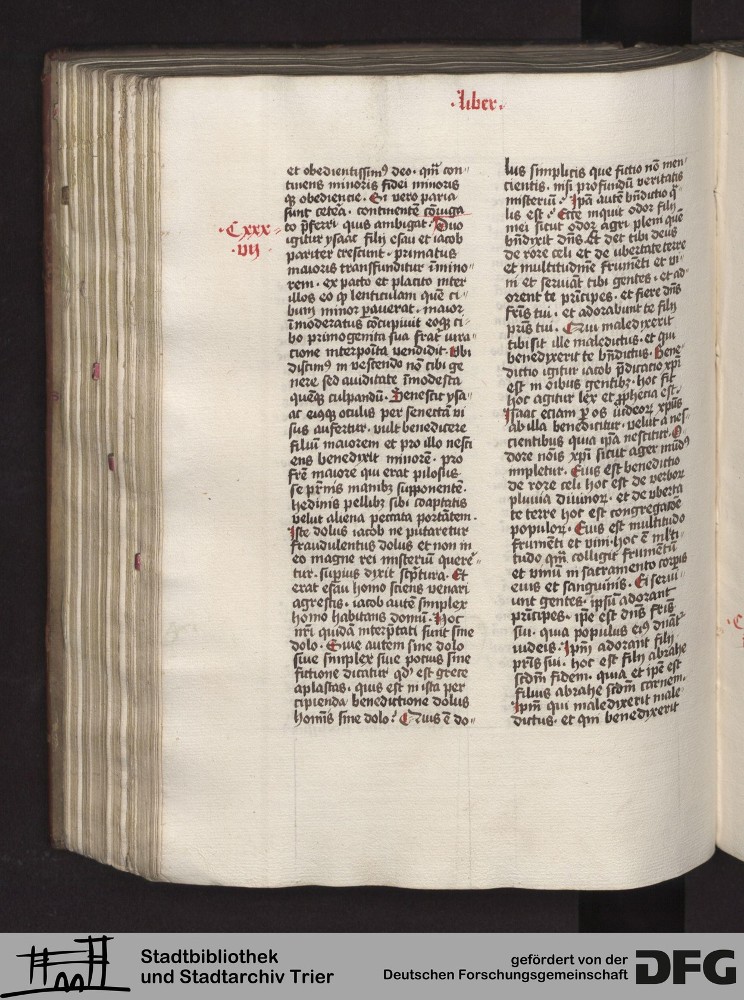 ·liber·
et obedientissimꝰ deo· qm̄ con⸗
tinens minoris fidei minoris
qꝫ obediencie· Si vero paria
sunt cetēa· continentē cōiuga
to p̄ferri quis ambigat· Duo
·Cxxx⸗
·vij·
igitur ysaac filij esau et iacob
pariter crescunt· primatus
maioris transfunditur ī mino⸗
rem· ex pacto et placito inter
illos eo qꝫ lenticulam quē ci⸗
bum minor pauerat· maior
īmoderatus cōcupiuit eoqꝫ ci⸗
bo primogenita sua frat̄ iura⸗
cione interpoīta vendidit· Vbi
distimꝰ in vescendo nō cibi ge
nere sed auiditate īmodesta
quēqꝫ culpandū· Senescit ysa⸗
ac eiusqꝫ oculis per senectā vi
sus aufertur· vult benedicere
filiū maiorem et pro illo nesci
ens benedixit minorē· pro
frē maiore qui erat pilosus
se pr̄nis manibꝫ supponentē·
hedinis pellibꝫ sibi coaptatis
velut aliena peccata portātem·
Iste dolus iacob ne putaretur
fraudulentus dolus et non in
eo magne rei misteriū quere⸗
tur· supius dixit scp̄tura· Et
erat esau homo sciens venari
agrestis· iacob autē simplex
homo habitans domū· Hoc
nr̄i quidā interp̄tati sunt sine
dolo· Siue autem sine dolo
siue simplex siue pocius sine
fictione dicatur qd̓ est grece
aplastas· quis est in ista per
cipienda benedictione dolus
hom̄is sine dolo? Quis ē do⸗
lus simplicis que fictio nō men⸗
cientis· nisi profundū veritatis
misteriū· Ip̄a autē bn̄dictio q̄
lis est· Ecce inquit odor filij
mei sicut odor agri pleni quē
bn̄dixit dn̄s· Et det tibi deus
de rore celi et de vbertate terre
et multitudinē frumēti et vi⸗
ni et seruiāt tibi gentes· et ad⸗
orent te prīcipes· et fiere dn̄s
fr̄is tui· et adorabunt te filij
pr̄is tui· Qui maledixerit
tibi sit ille maledictus· et qui
benedixerit te bn̄dictus· Bene⸗
dictio igitur iacob p̄dicatio xp̄i
est in oībus gentibꝫ· hoc fit
hoc agitur lex et ꝓphecia est·
Isaac eciam ꝑ os iudeoꝝ xp̄us
ab illa benedicitur· velut a nes⸗
cientibus quia ip̄a nescitur· O
dore nōīs xp̄i sicut ager mūdꝰ
impletur· Eius est benedictio
de rore celi· hoc est de verboꝝ
pluuia diuinoꝝ· et de vberta
te terre hoc est congregacōe
populoꝝ· Eius est multitudo
frumēti et vini· hoc ē ml̄ti⸗
tudo qm̄ colligit frumētū
et vinū in sacramento corpis
eius et sanguinis· Ei serui⸗
unt gentes· ipsū adorant
prīcipes· ip̄e est dn̄s fr̄is
sui· quia populus eiꝰ dn̄at̄
iudeis· Ip̄m adorant filij
pr̄is sui· hoc est filij abrahe
scdm̄ fidem· quia et ip̄e est
filius abrahe scdm̄ carnem·
Ip̄m qui maledixerit male⸗
dictus· et qui benedixerit
Stadtbibliothek
und Stadtarchiv Trier
gefördert von der
Deutschen Forschungsgemeinschaft DFG